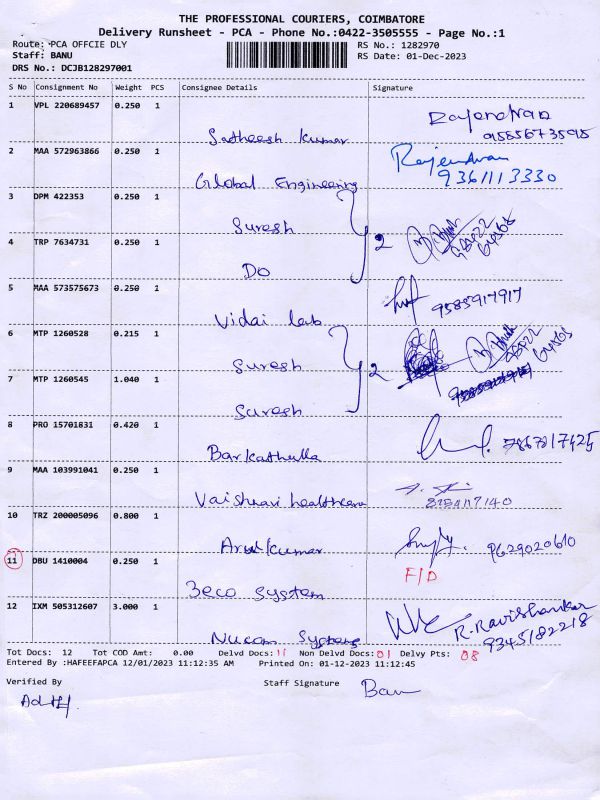 THE PROFESSIONAL COURIERS, COIMBATORE
Delivery Runsheet - PCA - Phone No.:0422-3505555 - Page No.:1
Route: PCA OFFCIE DLY
RS No.: 1282970
Staff: BANU
RS Date: 01-Dec-2023
DRS No.: DCJB128297001
S No Consignment No Weight PCS Consignee Details Signature
1 VPL 220689457 0.250 1
Rajendran
9585673595
Satheesh kumar
2 MAA 572963866 0.250 1
Rajendran
9361113330
Global Engineering
3 DPM 422353 0.250 1
Suresh
2
4 TRP 7634731 0.250 1
Do
5 MAA 573575673 0.250 1
9585917917
Vidai lab
6 MTP 1260528 0.215 1
Suresh
2
7 MTP 1260545 1.040 1
Suresh
8 PRO 15701831 0.420 1
7867817425
Barkathulla
9 MAA 103991041 0.250 1
Vaishnavi healthcare
10 TRZ 200005096 0.800 1
9629020610
Arulkumar
11 DBU 1410004 0.250 1
F/D
3eco System
12 IXM 505312607 3.000 1
R. Ravishankar
9345182218
Nucom Systems
Tot Docs: 12 Tot COD Amt: 0.00 Delvd Docs: 11 Non Delvd Docs: 01 Delvy Pts: 08
Entered By :HAFEEFAPCA 12/01/2023 11:12:35 AM Printed On: 01-12-2023 11:12:45
Verified By
Staff Signature Banu